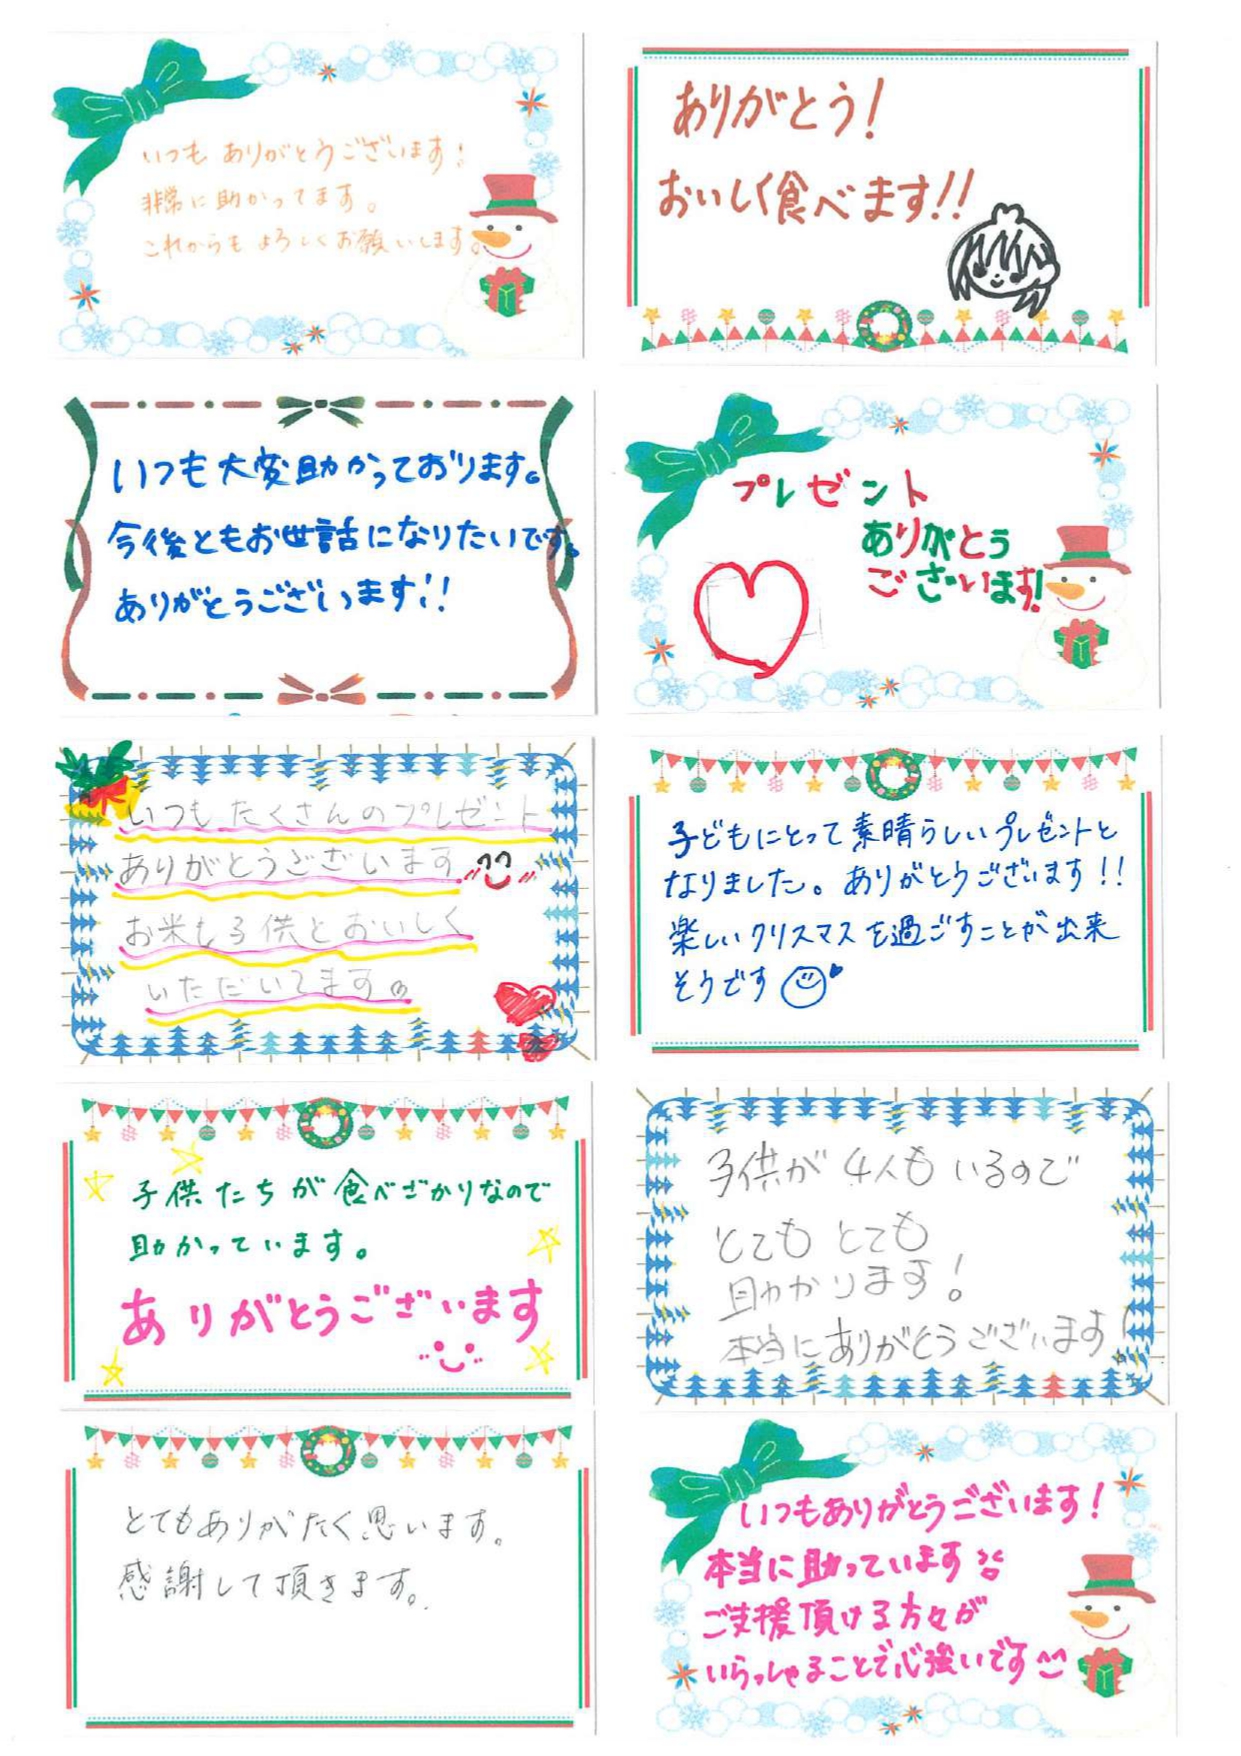 いつも ありがとうございます!
非常に助かってます。
これからも よろしくお願いします。
ありがとう!
おいしく食べます!!
いつも大変助かっております。
今後ともお世話になりたいです。
ありがとうございます!!
プレゼント
ありがとう
ございます!
いつもたくさんのプレゼント
ありがとうございます
お米も子供とおいしく
いただいてます。
子どもにとって素晴らしいプレゼントと
なりました。ありがとうございます!!
楽しいクリスマスを過ごすことが出来
そうです
子供たちが食べざかりなので
助かっています。
ありがとうございます
子供が4人もいるので
とてもとても
助かります!
本当にありがとうございます!
とてもありがたく思います。
感謝して頂きます。
いつもありがとうございます!
本当に助っています
ご支援頂ける方々が
いらっしゃることで心強いです^^